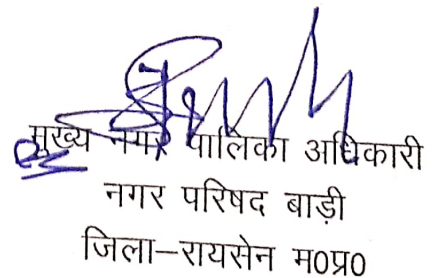 मुख्य नगर पालिका अधिकारी
नगर परिषद बाड़ी
जिला–रायसेन म०प्र०